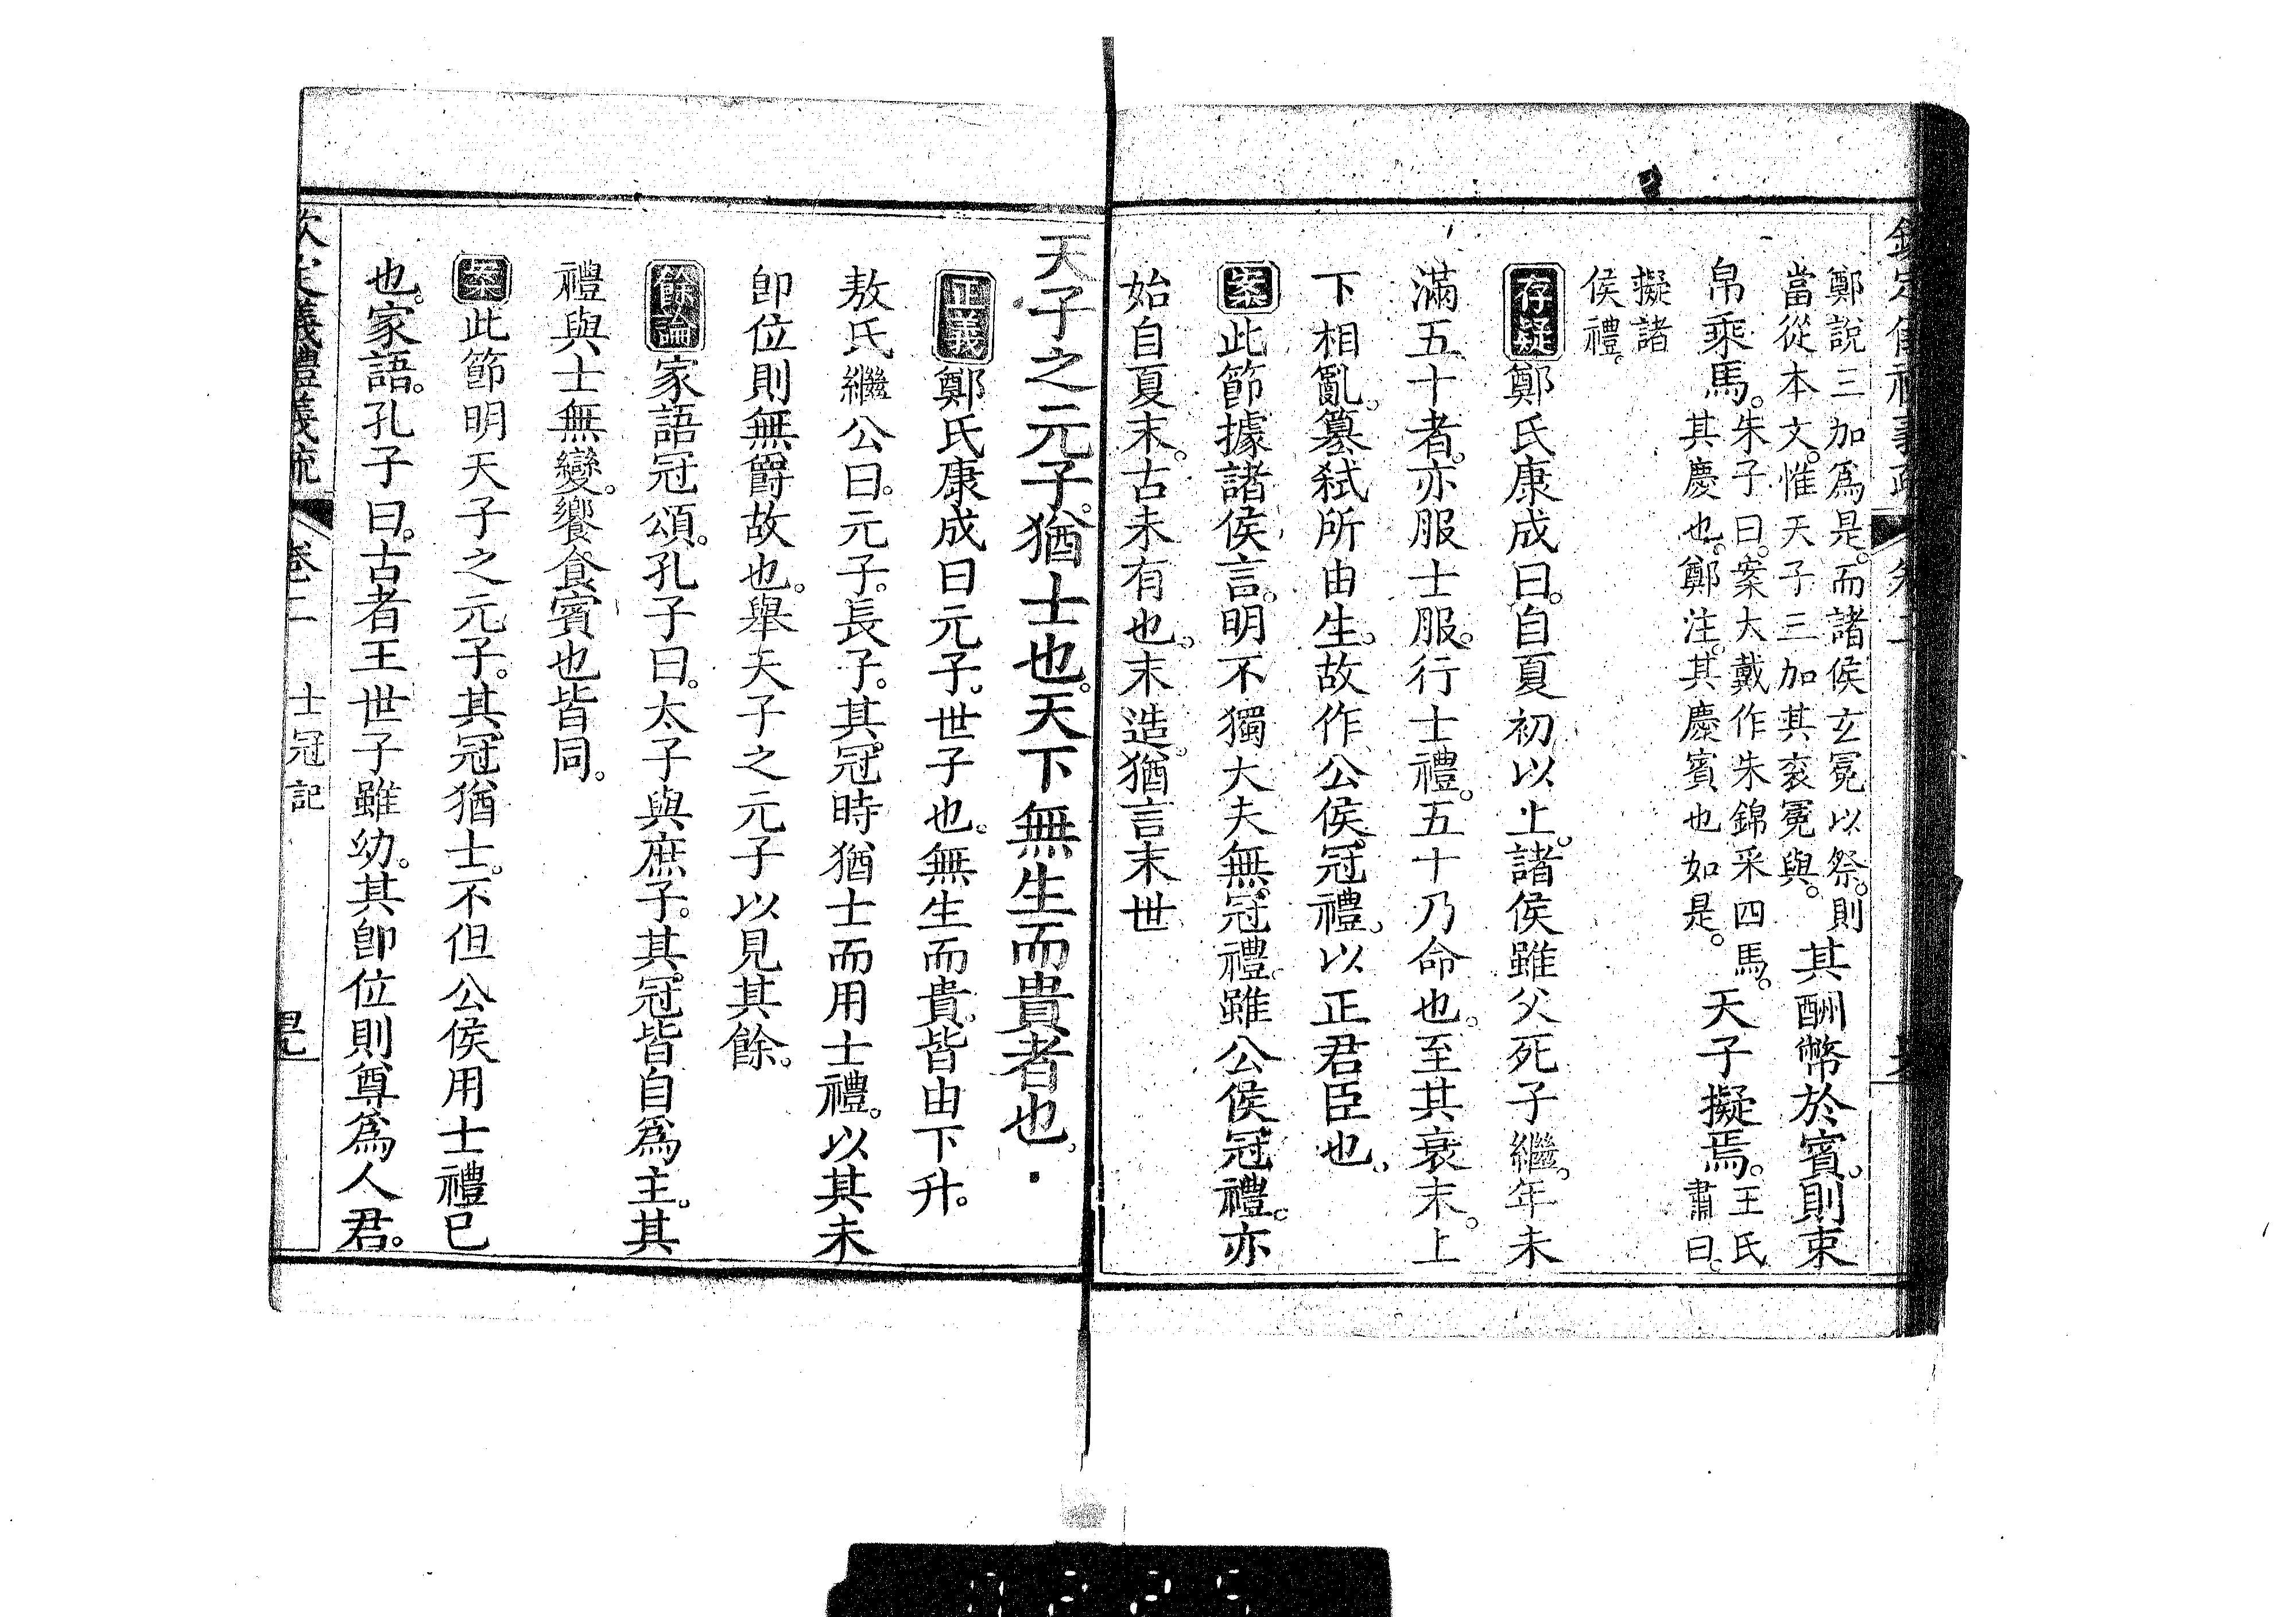 鄭說三加爲是。而諸侯玄冕以祭。則
當從本文。惟天子三加其衮冕與。
其酬幣於賓。則束
帛乘馬。
朱子曰。案大戴作朱錦采四馬。
其慶也。鄭注。其慶賓也如是。
天子擬焉。
王氏
肅曰。
擬諸
侯禮。
存疑鄭氏康成曰。自夏初以上。諸侯雖父死子繼。年未
滿五十者。亦服士服。行士禮。五十乃命也。至其衰末。上
下相亂。篡弑所由生。故作公侯冠禮。以正君臣也。
案此節據諸侯言。明不獨大夫無冠禮。雖公侯冠禮。亦
始自夏末。古未有也。末造。猶言末世
天子之元子。猶士也。天下無生而貴者也。
正義鄭氏康成曰元子。世子也。無生而貴。皆由下升。
敖氏繼公曰。元子。長子。其冠時猶士而用士禮。以其未
卽位則無爵故也。舉天子之元子以見其餘。
餘論家語冠頌。孔子曰。太子與庶子。其冠皆自爲主。其
禮與士無變。饗食賓也皆同。
案此節明天子之元子。其冠猶士。不但公侯用士禮已
也。家語。孔子曰。古者王世子雖幼。其卽位則尊爲人君。
欽定儀禮義疏 卷二 士冠記